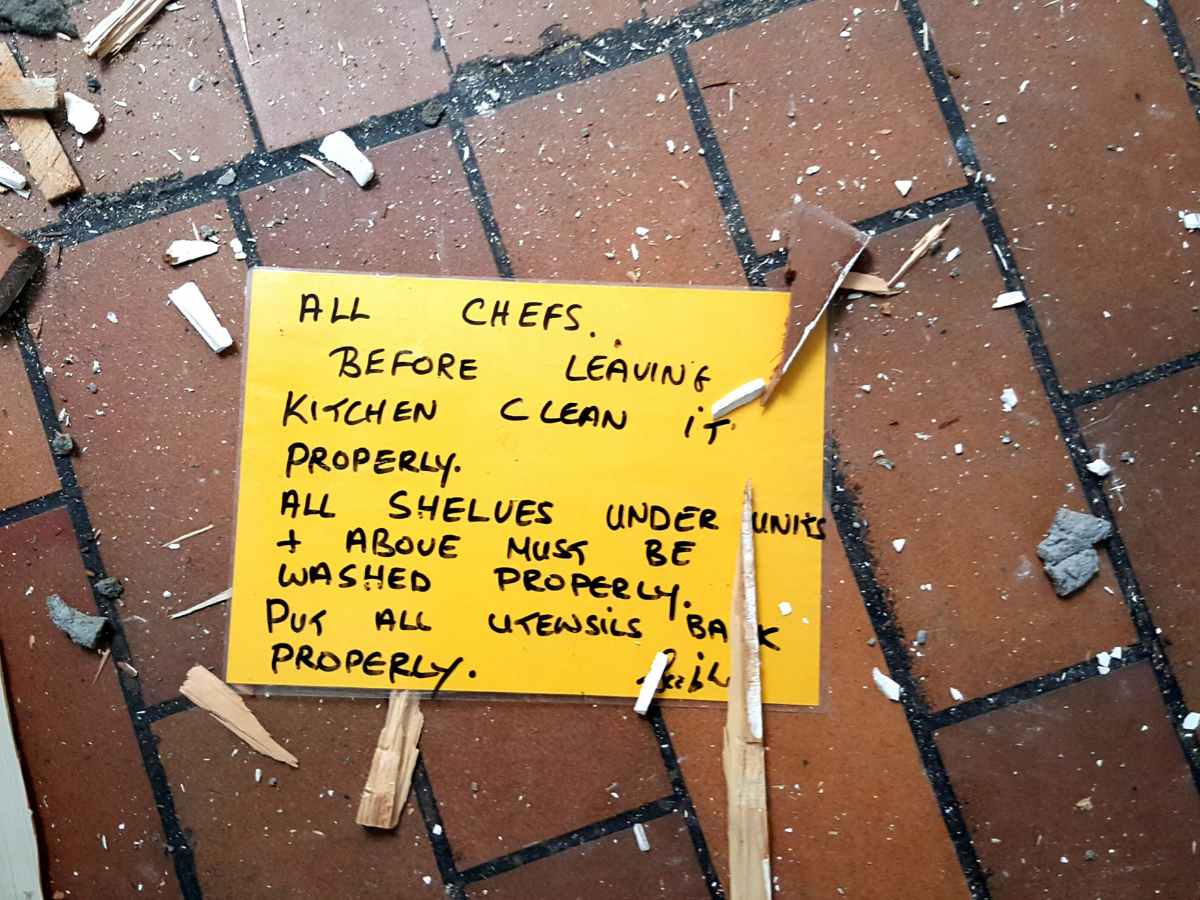 ALL CHEFS.
BEFORE LEAVING
KITCHEN CLEAN iT
PROPERLY.
ALL SHELVES UNDER UNITS
+ ABOVE MUST BE
WASHED PROPERLY.
PUT ALL UTENSILS BACK
PROPERLY.